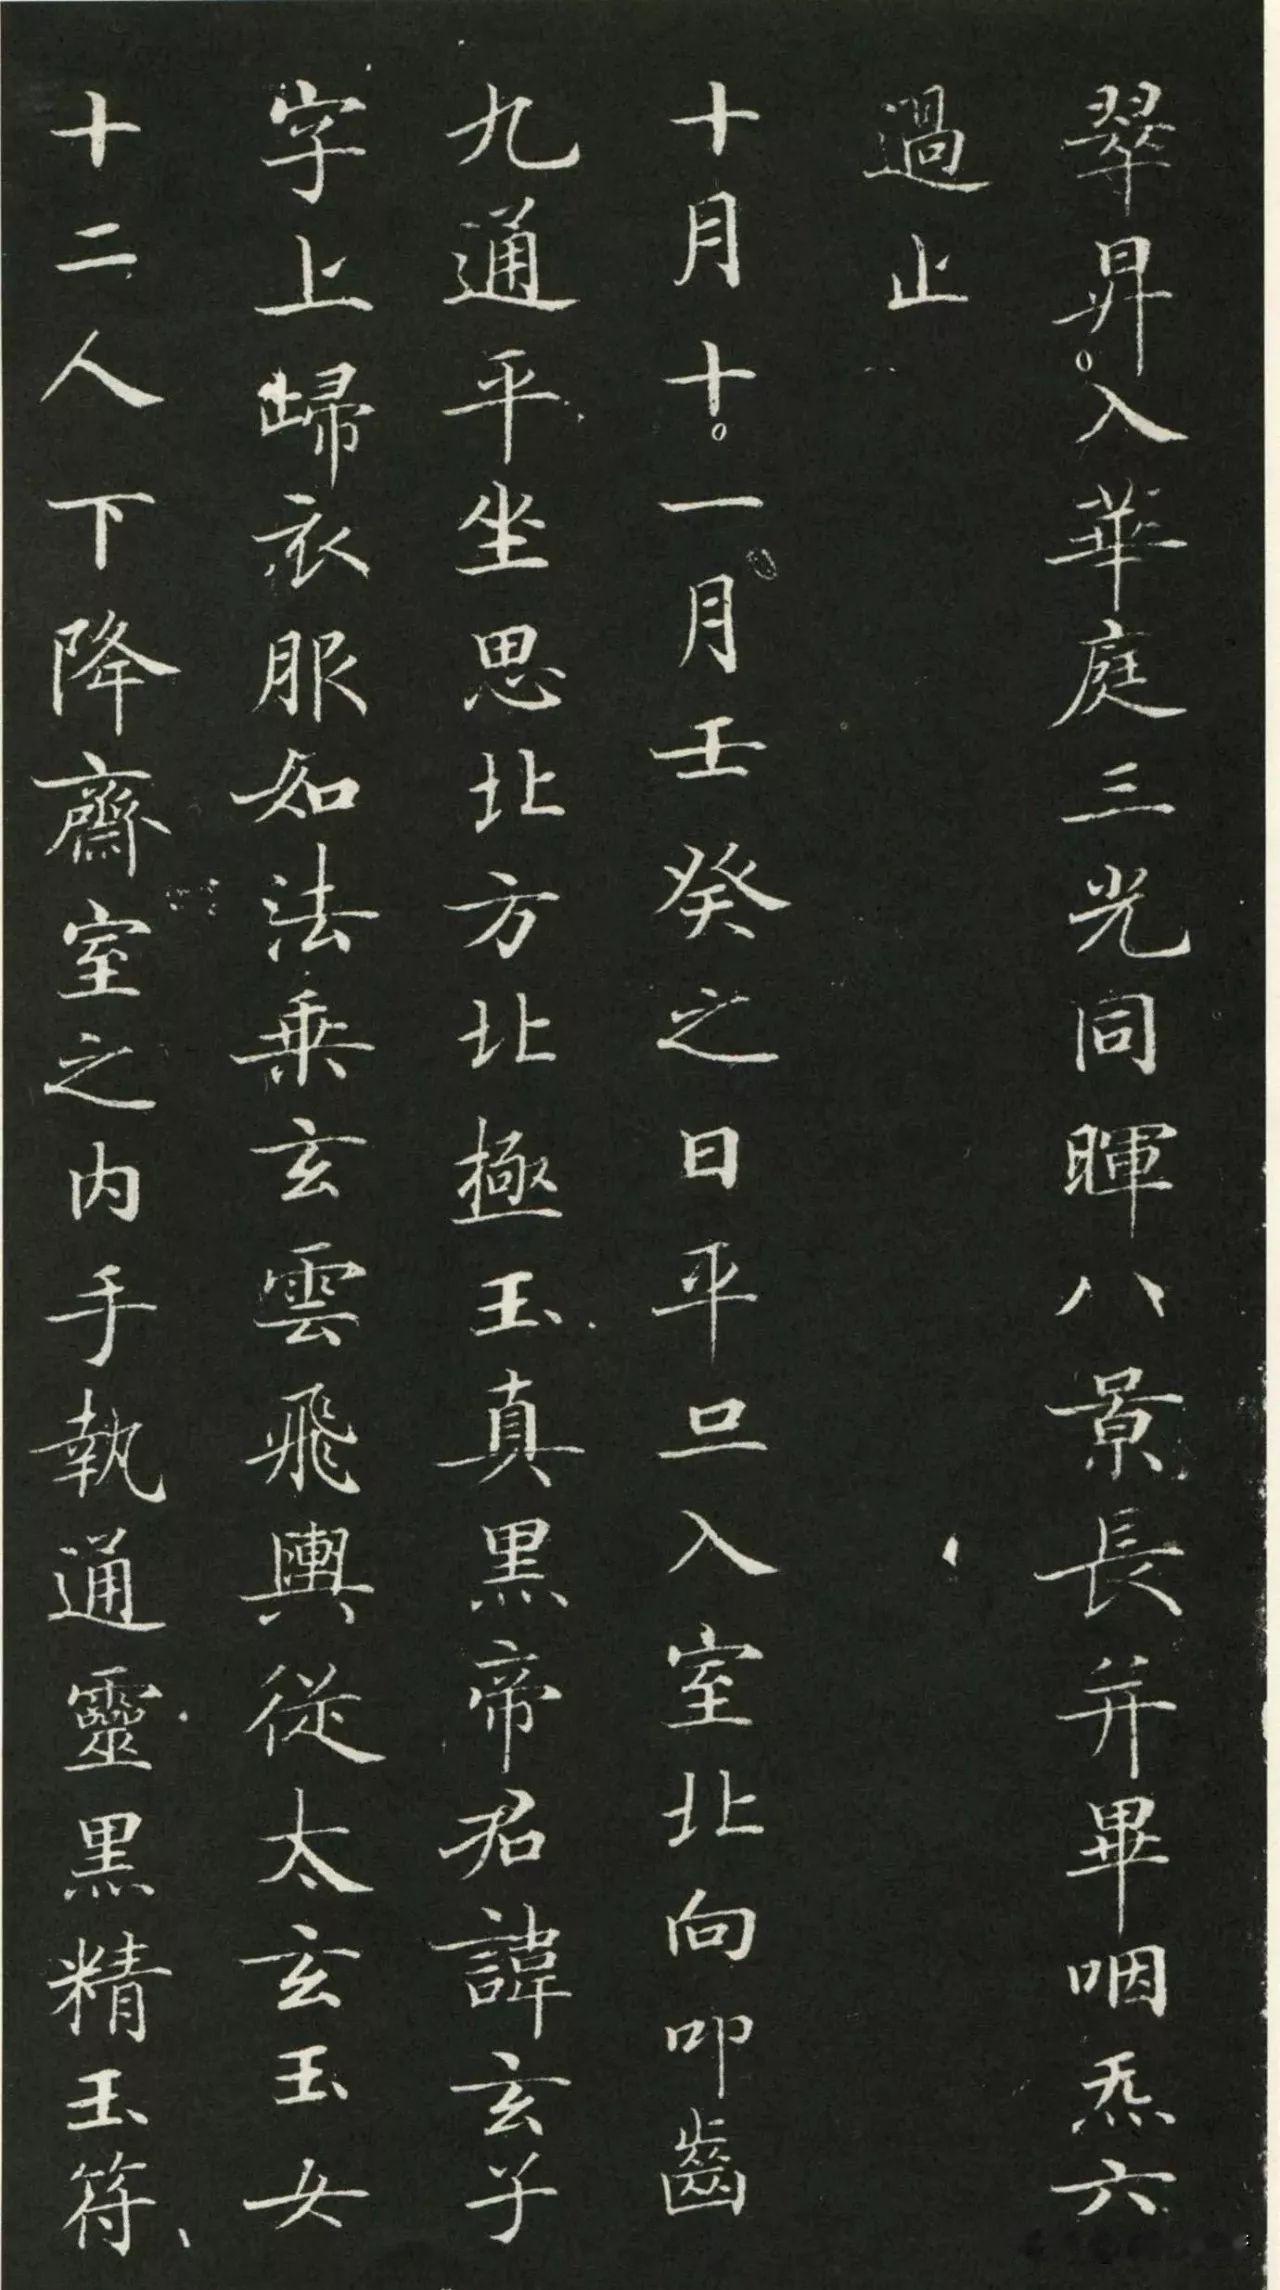 翠昇入華庭三光同暉八景長并畢咽炁六
過止
十月十一月壬癸之日平旦入室北向叩齒
九通平坐思北方北極玉真黑帝君諱玄子
字上歸衣服如法乗玄雲飛輿從太玄玉女
十二人下降齋室之内手執通靈黑精玉符